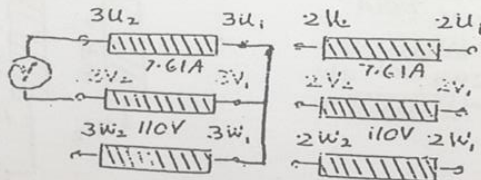 3U₂ 3U₁ 2U₂ 2U₁
7.61A 7.61A
V
3V₂ 3V₁ 2V₂ 2V₁
3W₂ 110V 3W₁ 2W₂ 110V 2W₁